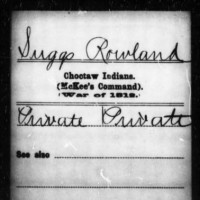 Suggs Rowland
Choctaw Indians.
(McKee's Command).
War of 1812.
Private Private
See also